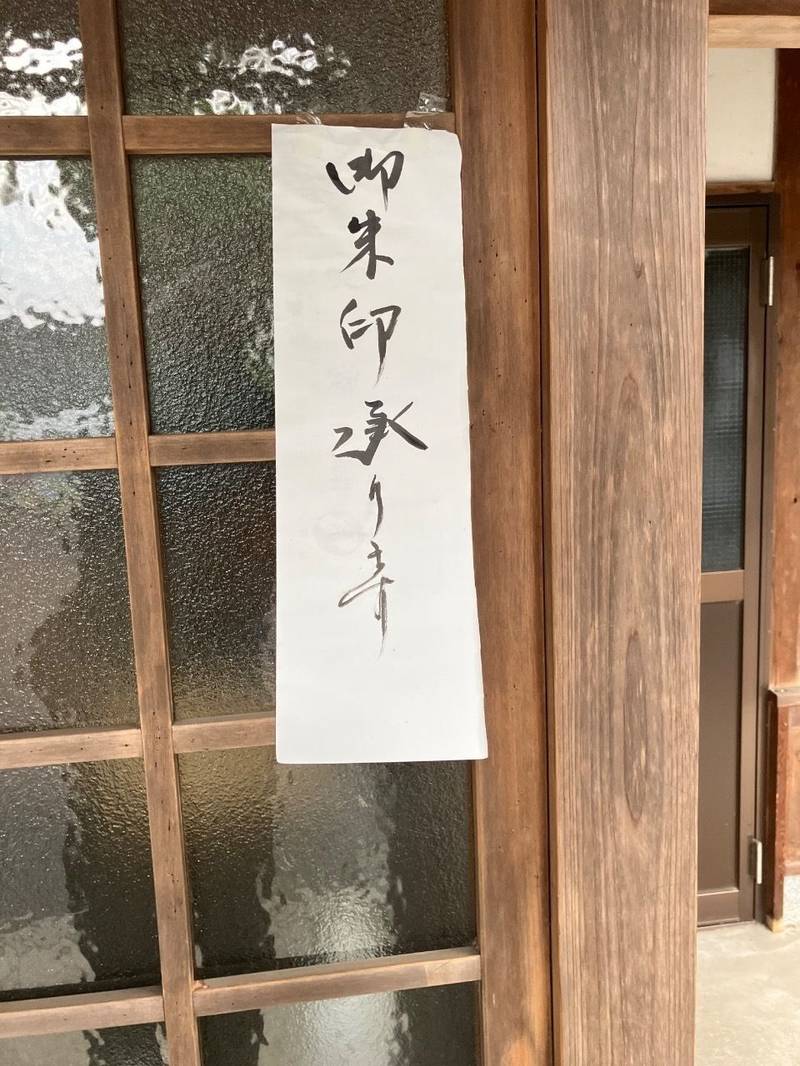 御朱印承ります